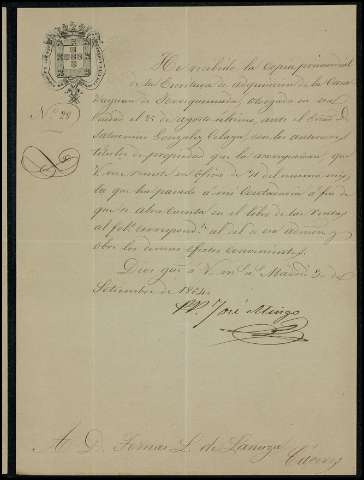 He recibido la Copia provisional
de la Escritura de adquisicion de la Casa
otorgada en esa
Ciudad el 25 de agosto último, ante el Escno D.
Saturnino Gonzalez Celaya, con los anteriores
títulos de propiedad que la acompañan, que
V. me remite en oficio de 31 del mismo mes,
la que ha pasado á mi Contaduría á fin de
que se abra cuenta en el libro de las Rentas
al folº correspondte al de esa Admón y
obre los demas efectos convenientes.
Dios gue á V. ms. as. Madrid 2 de
Setiembre de 1864.
Nº 28
P.P. José Mingo
A D. Tomas L. de Lanuza
Cáceres